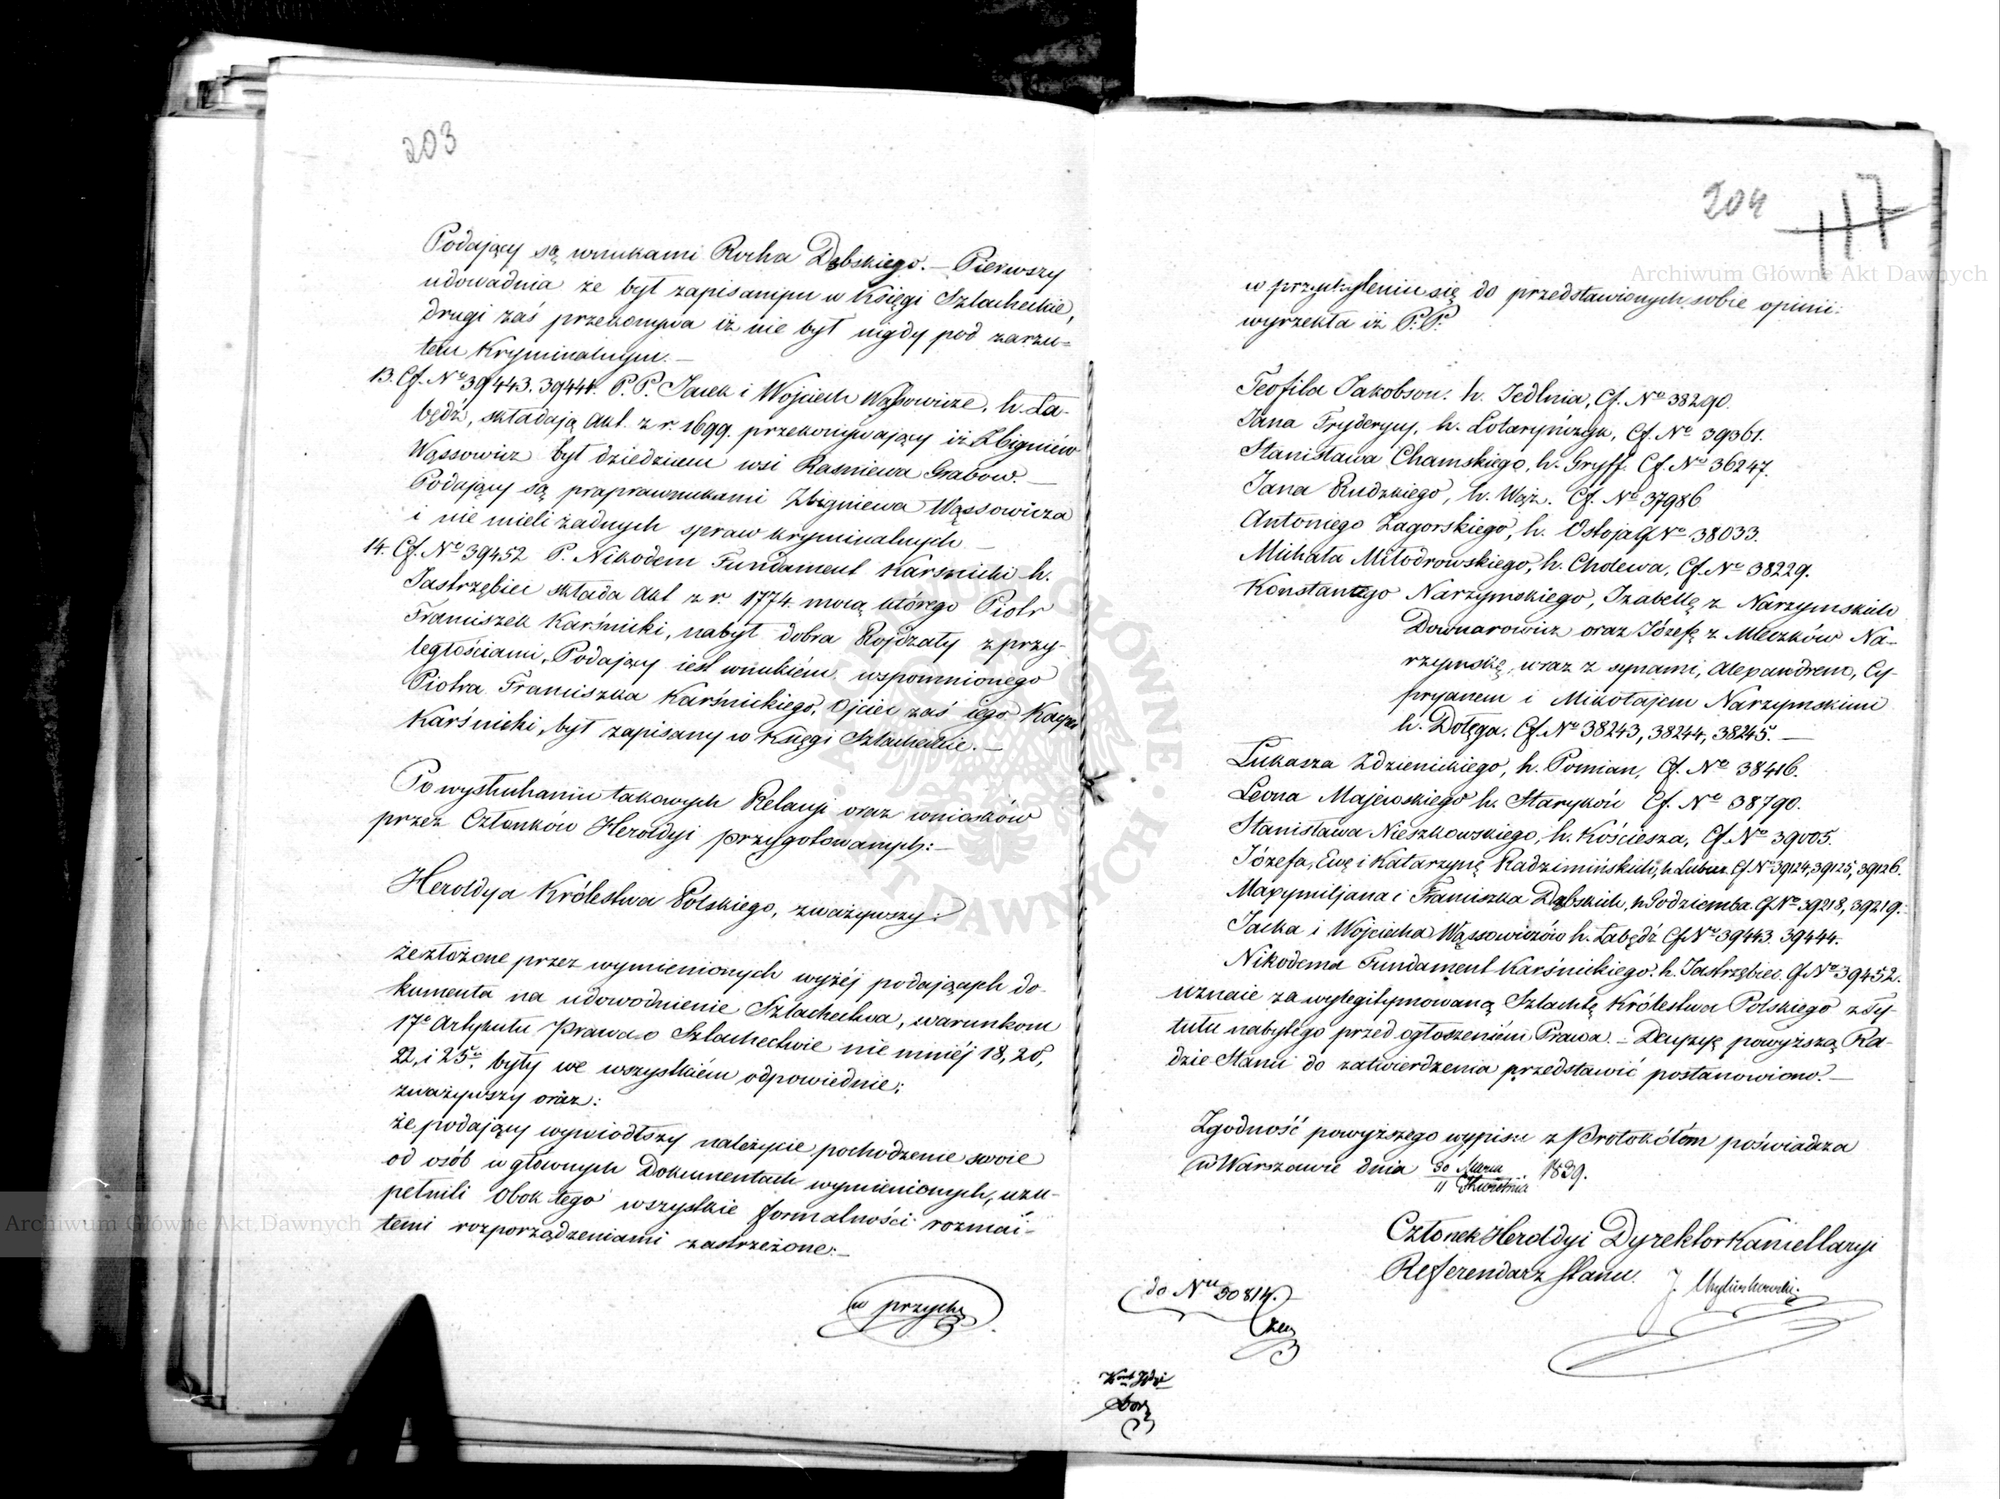 203
Podający są wnukami Rocha Dąbskiego. — Pierwszy
udowadnia że był zapisanym w Księgi Szlacheckie,
drugi zaś przekonywa iż nie był nigdy pod zarzu=
tem Kryminalnym. —
13. Cf. Nº 39443. 39444. P.P. Jacek i Wojciech Wąssowicze, h. Ła-
będź, składają Akt z r. 1699. przekonywający iż Zbigniew
Wąssowicz był dziedzicem wsi Rasniewa Grabow. —
Podający są praprawnukami Zbigniewa Wąssowicza
i nie mieli żadnych spraw kryminalnych —
14. Cf. Nº 39452 P. Nikodem Fundament Karśnicki h.
Jastrzębiec składa Akt z r. 1774. mocą którego Piotr
Franciszek Karśnicki, nabył dobra Rojdzały z przy-
ległościami, Podający iest wnukiem wspomnionego
Piotra Franciszka Karśnickiego, Ojciec zaś iego
Karśnicki, był zapisany w Księgi Szlacheckie. —
Po wysłuchaniu takowych Relacyi oraz wniosków
przez Członków Heroldyi przygotowanych: —
Heroldya Królestwa Polskiego, zważywszy:
że złożone przez wymienionych wyżéj podających do-
kumenta na udowodnienie Szlachectwa, warunkom
17º Artykułu Prawa o Szlachectwie niemniéj 18, 20,
22, i 25º były we wszystkiém odpowiednie;
zważywszy oraz:
że podający wywiódłszy należycie pochodzenie swoie
od osób w głównych Dokumentach wymienionych, uzu-
pełnili obok tego wszystkie formalności rozmai-
temi rozporządzeniami zastrzeżone: —
w przychy
204
117
w przychyleniu się do przedstawionych sobie opinii:
wyrzekła iż P.P.
Teofila Jakobson. h. Jedlnia, Cf. Nº 38290.
Jana Fryderycy, h. Lotaryńczyk, Cf. Nº 39361.
Stanisława Chamskiego, h. Gryff. Cf. Nº 36247.
Jana Rudzkiego, h. Wąż. Cf. Nº 37986
Antoniego Zagorskiego, h. Ostoja Cf Nº 38033.
Michała Miłodrowskiego, h. Cholewa, Cf. Nº 38229.
Konstantego Narzymskiego, Izabellę z Narzymskich
Downarowicz oraz Józefę z Mleczków Na-
rzymską, wraz z synami, Alexandrem, Cy-
pryanem i Mikołajem Narzymskiemi
h. Dołęga. Cf. Nº 38243, 38244, 38245. —
Łukasza Zdzienickiego, h. Pomian, Cf. Nº 38416.
Leona Majewskiego h. Starykoń Cf. Nº 38790.
Stanisława Nieszkowskiego, h. Kościesza, Cf. Nº 39005.
Józefa, Ewę i Katarzynę Radzimińskich, h. Lubicz Cf. Nº 39124, 39125, 39126.
Maxymiljana i Franciszka Dąbskich, h. Godziemba. Cf Nº 39218, 39219.
Jacka i Wojciecha Wąssowiczów h. Łabędź Cf Nº 39443. 39444.
Nikodema Fundament Karśnickiego. h. Jastrzębiec. Cf Nº 39452.
uznaie za wylegitymowaną Szlachtę Królestwa Polskiego z ty-
tułu nabytego przed ogłoszeniem Prawa. — Decyzyę powyższą Ra-
dzie Stanu do zatwierdzenia przedstawić postanowiono. —
Zgodność powyższego wypisu z Protokółem poświadcza
w Warszawie dnia 30 Marca / 11 Kwietnia 1839.
Członek Heroldyi Dyrektor Kancellaryi
Referendarz Stanu.
do Nru 30814.
Archiwum Główne Akt Dawnych
Archiwum Główne Akt Dawnych